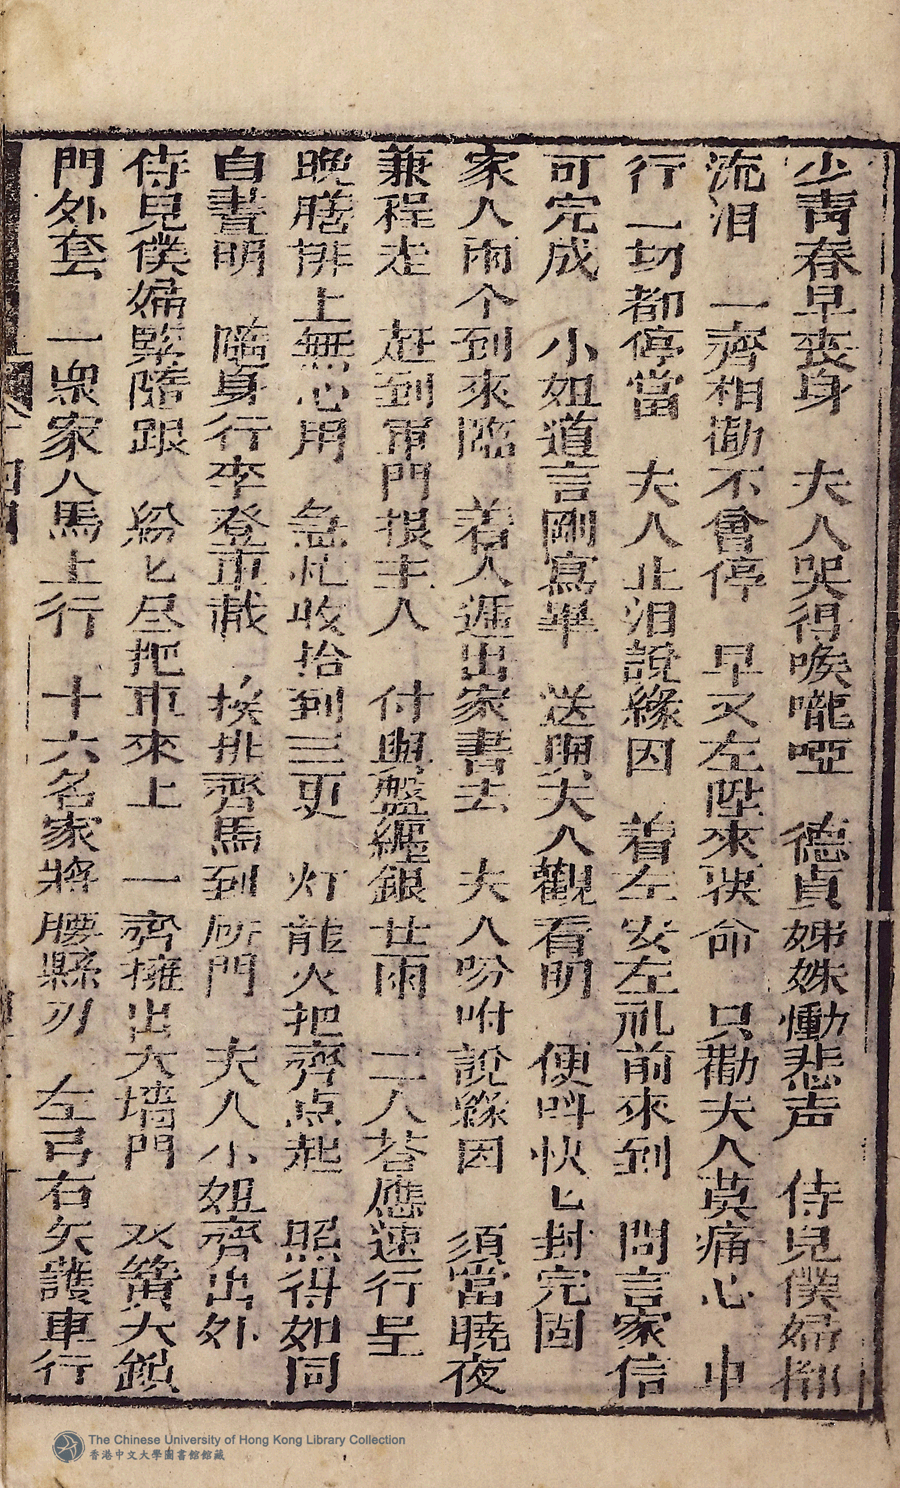 少靑春早丧身　夫人哭得喉嚨啞　德貞姊姝慟悲声　侍兒僕婦都
流泪　一齊相勸不曾停　早又左陞來
命　只勸夫人莫痛心　車
行一切都停當　夫人止泪說緣因　着左安左礼前來到　問言家信
可完成　小姐道言剛寫畢　送與夫人觀看明　便呌快匕封完固
家人兩个到來臨　着人遞出家書去　夫人吩咐說緣因　須當曉夜
兼程走　赶到軍門报主人　付與盤纏銀廿兩　二人荅應速行呈
晚膳排上無心用　急忙收拾到三更　灯籠火把齊点起　照得如同
白晝明　隨身行李登車載　挨排齊馬到所門　夫人小姐齊出外
侍兒僕婦緊隨跟　紛匕尽把車來上　一齊擁出大墻門　双簧大鎖
門外套　一衆家人馬上行　十六名家將腰縣刃　左弓右矢護車行
The Chinese University of Hong Kong Library Collection
香港中文大學圖書館館藏